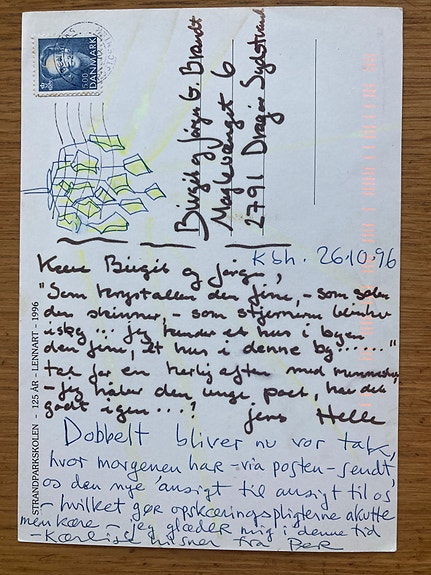 DANMARK
5.00
Birgit og Jørgen G. Brandt
Maglevænget 6
2791 Dragør Sydstrand
Kbh. 26.10.96
Kære Birgit og Jørgen,
"Som krystallen den fine, - som solen
den skinner, - som stjernerne blinke
i sky... jeg kender et hus i byen
den fine, et hus i denne by......"
tak for en herlig aften med mennesker
- jeg håber den unge poet, har det
godt igen...!
Jens Helle
Dobbelt bliver nu vor tak,
hvor morgenen har - via posten - sendt
os den nye 'ansigt til ansigt til os'
- hvilket gør opskæringspligterne akutte
men kære - jeg glæder mig i denne tid
- Kærlige hilsner fra Per
STRANDPARKSKOLEN - 125 ÅR - LENNART - 1996